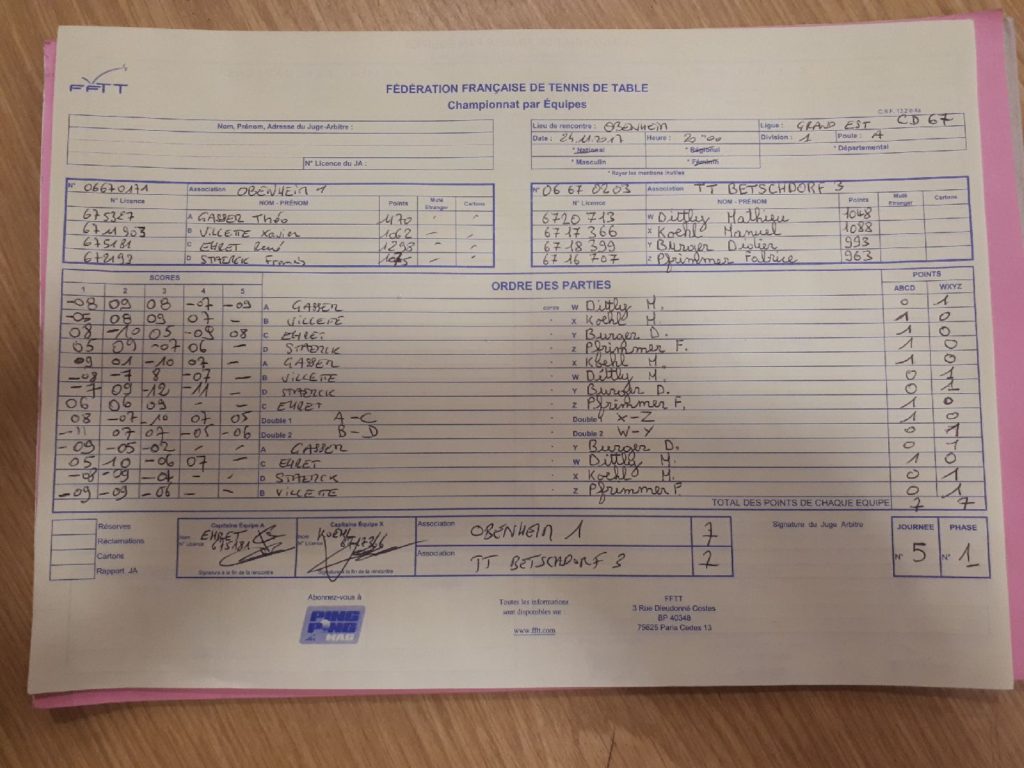 FFTT
FÉDÉRATION FRANÇAISE DE TENNIS DE TABLE
Championnat par Équipes
Nom, Prénom, Adresse du Juge-Arbitre :
N° Licence du JA :
Lieu de rencontre : OBENHEIM Ligue : GRAND EST CD 67
Date : 24.11.2017 Heure : 20 H 00 Division : 1 Poule : A
* National * Régional * Départemental
* Masculin * Féminin
* Rayer les mentions inutiles
N° 06670171 Association OBENHEIM 1
N° Licence NOM - PRÉNOM Points Muté Etranger Cartons
675327 A GASSER Théo 1170 - -
6711903 B VILLETTE Xavier 1062 - -
675181 C EHRET René 1293 - -
672193 D STAERCK Francis - -
N° 06 67 0203 Association TT BETSCHDORF 3
N° Licence NOM - PRÉNOM Points Muté Etranger Cartons
6720 713 W Dittly Mathieu 1048
6717 366 X Koehl Manuel 1088
6718 399 Y Burger Didier 993
6716 707 Z Pfrimmer Fabrice 963
SCORES ORDRE DES PARTIES POINTS
1 2 3 4 5 ABCD WXYZ
-08 09 08 -07 -09 A GASSER contre W Dittly M. 0 1
-05 08 09 07 - B VILLETTE X Koehl M. 1 0
08 -10 05 -09 08 C EHRET Y Burger D. 1 0
05 09 -07 06 - D STAERCK Z Pfrimmer F. 1 0
09 01 -10 07 - A GASSER X Koehl M. 1 0
-08 -7 8 -07 - B VILLETTE W Dittly M. 0 1
-7 09 -12 -11 - D STAERCK Y Burger D. 0 1
06 06 09 - - C EHRET Z Pfrimmer F. 1 0
08 -07 -10 07 05 Double 1 A-C Double 1 X-Z 1 0
-11 07 07 -05 -06 Double 2 B-D Double 2 W-Y 0 1
-09 -05 -02 - - A GASSER Y Burger D. 0 1
05 10 -06 07 - C EHRET W Dittly M. 1 0
-08 -09 - - D STAERCK X Koehl M. 0 1
-09 -09 -06 - - B VILLETTE Z Pfrimmer F. 0 1
TOTAL DES POINTS DE CHAQUE EQUIPE 7 7
Réserves
Réclamations
Cartons
Rapport JA
Capitaine Équipe A
Nom EHRET
N° Licence 675181
Signature à la fin de la rencontre
Capitaine Équipe X
Nom KOEHL
N° Licence 6717366
Signature à la fin de la rencontre
Association OBENHEIM 1 7
Association TT BETSCHDORF 3 7
Signature du Juge Arbitre
JOURNEE PHASE
N° 5 N° 1
Abonnez-vous à
PING PONG MAG
Toutes les informations
sont disponibles sur :
www.fftt.com
FFTT
3 Rue Dieudonné Costes
BP 40348
75625 Paris Cedex 13